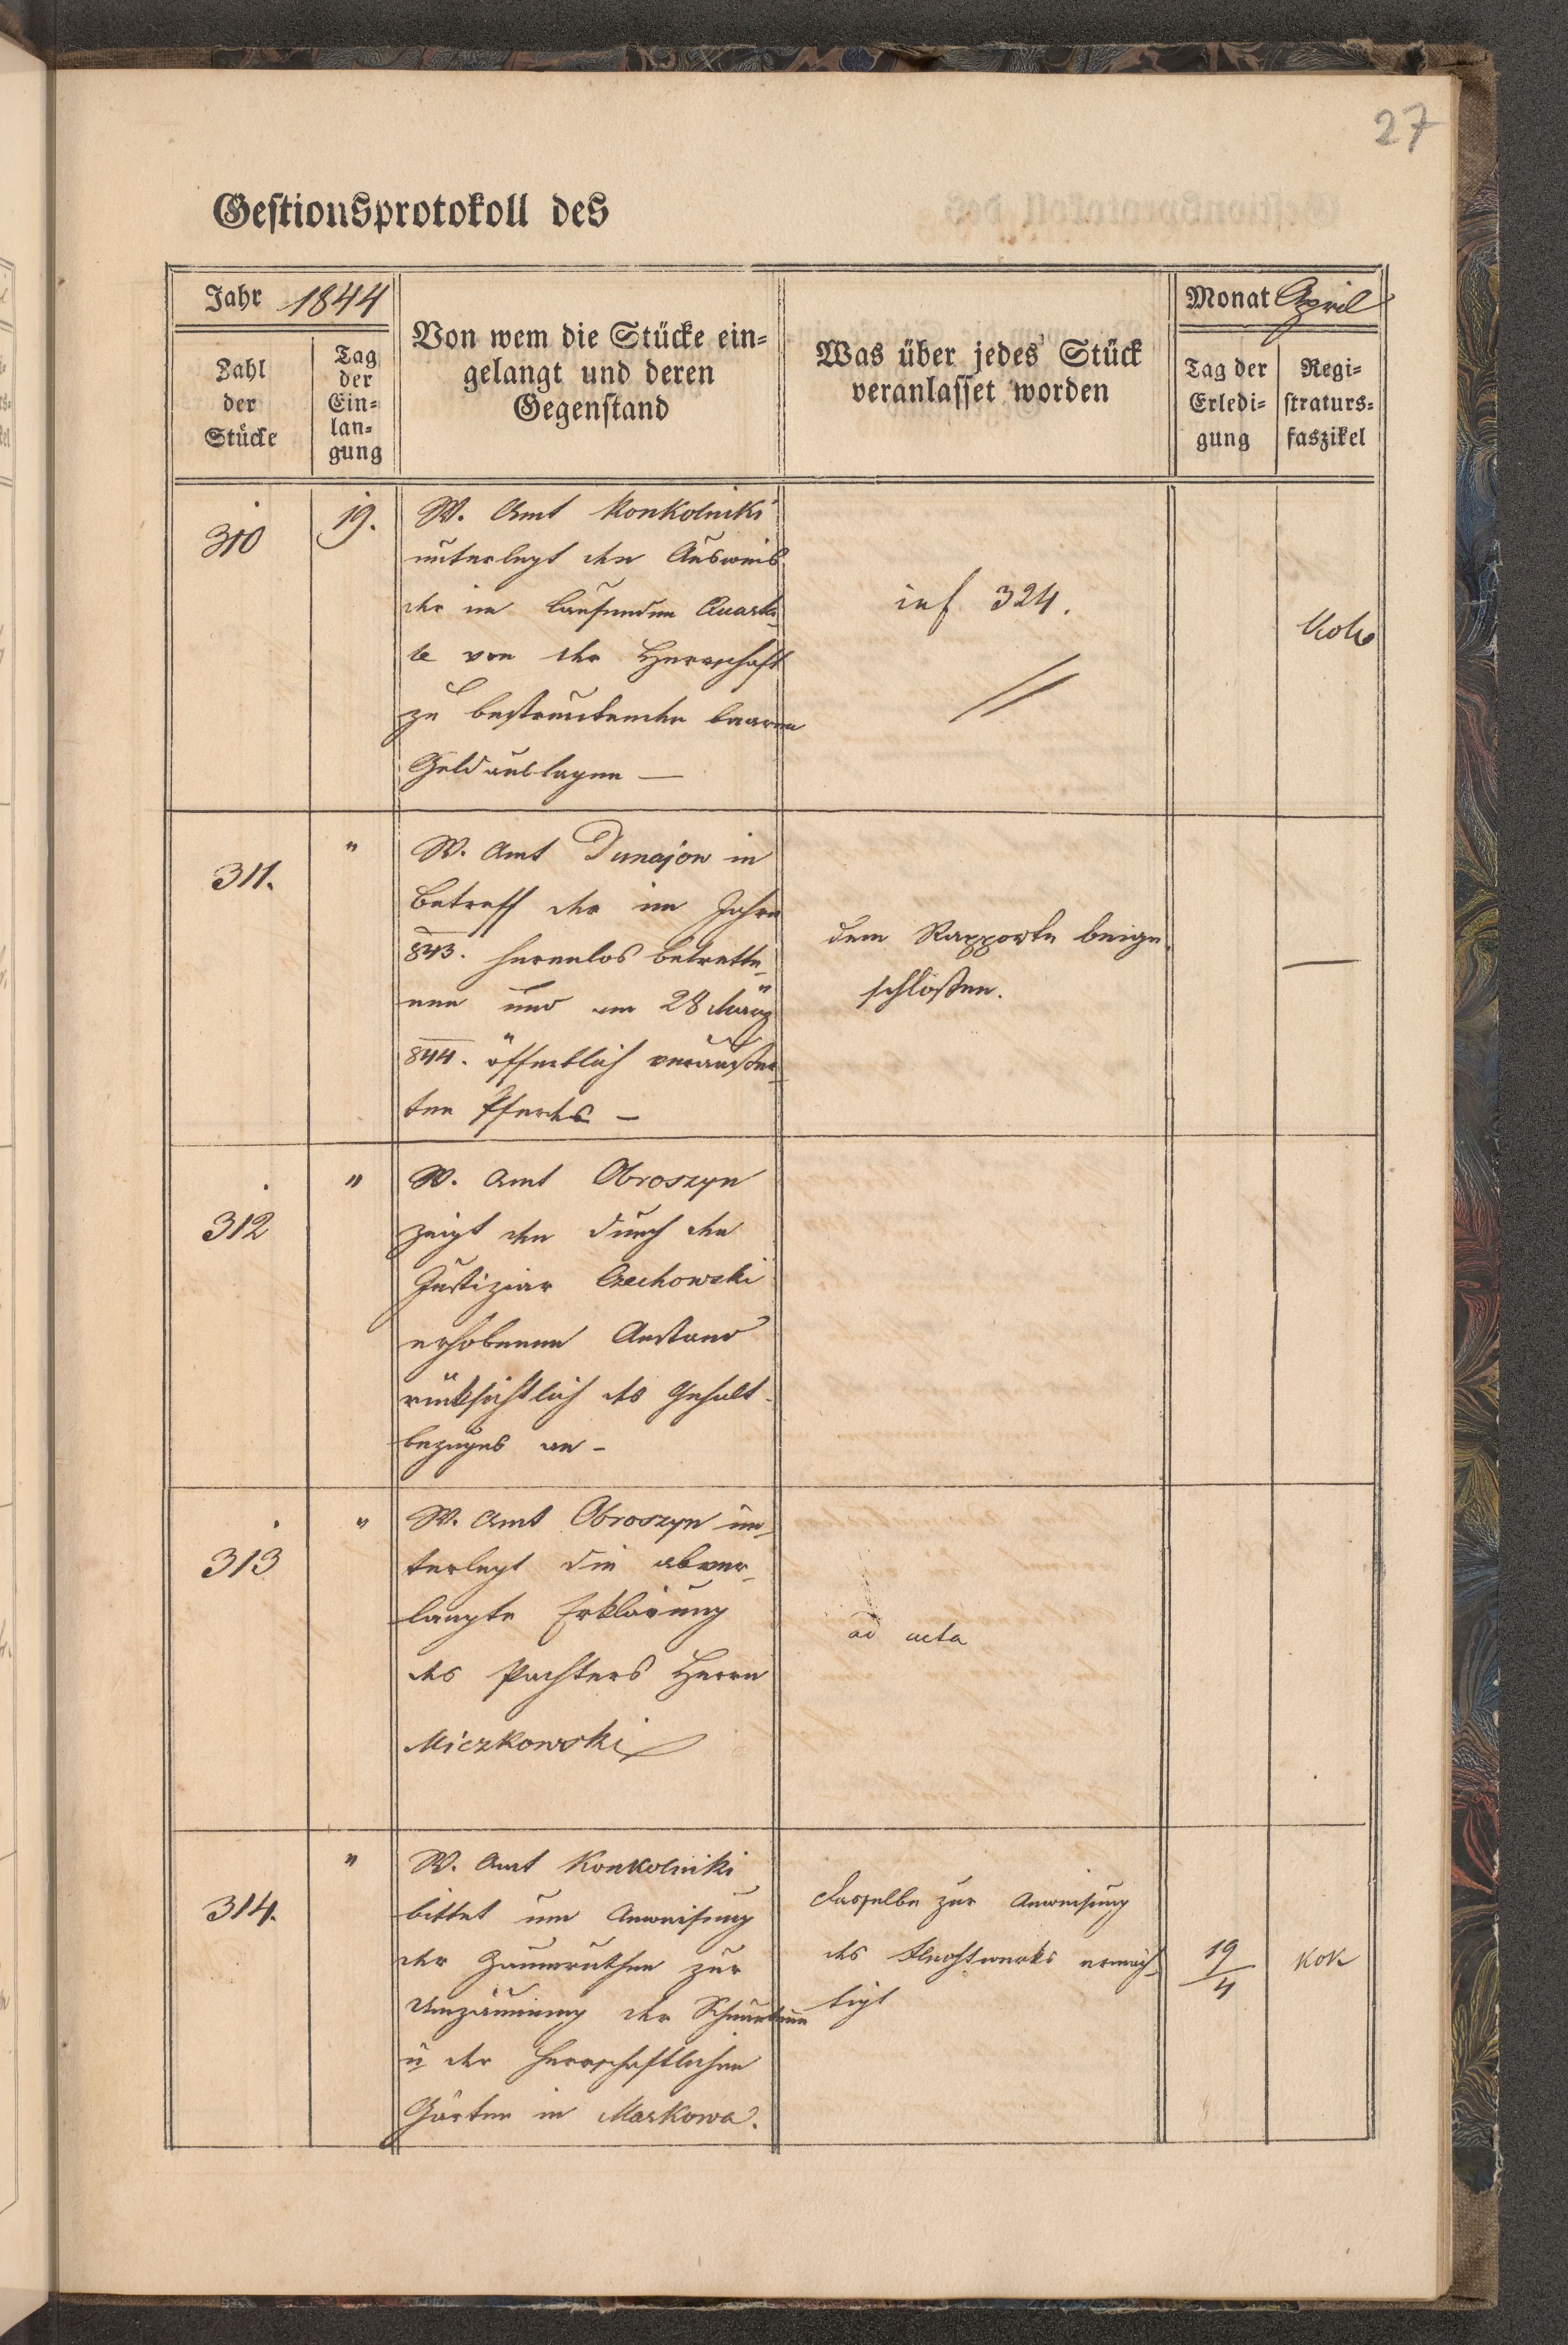 27
Gestionsprotokoll des
Jahr 1844
Zahl
der
Stücke
Tag
der
Ein=
lan=
gung
Von wem die Stücke ein=
gelangt und deren
Gegenstand
Was über jedes Stück
veranlasset worden
Monat April
Tag der
Erledi=
gung
Regi=
straturs=
faszikel
310
19.
W. Amt Konkolniki
unterlegt den Ausweis
der im laufenden Quarta
le von der Herrschaft
zu bestreitenden baaren
Geldauslagen —
inf 324.
//
Kok
311.
"
W. Amt Dunajow in
Betreff des im Jahre
843. herrenlos betrette
nen und am 28 März
844. öffentlich veräußer
ten Pferdes —
dem Rapporte beige
schloßen.
—
312
"
W. Amt Obroszyn
zeigt den durch den
Justiziar Czechowski
erhobenen Anstand
rücksichtlich des Gehalt
bezuges an –
313
"
W. Amt Obroszyn un
terlegt die abver
langte Erklärung
des Pachters Herrn
Miczkowski
ad acta
314.
"
W. Amt Konkolniki
bittet um Anweisung
der Zaunruthen zur
Umzäunung der
u der herrschaftlichen
Gärten in Markowa.
dasselbe zur Anweisung
des Flechtwerks ermäch
tigt
19/4
Kok